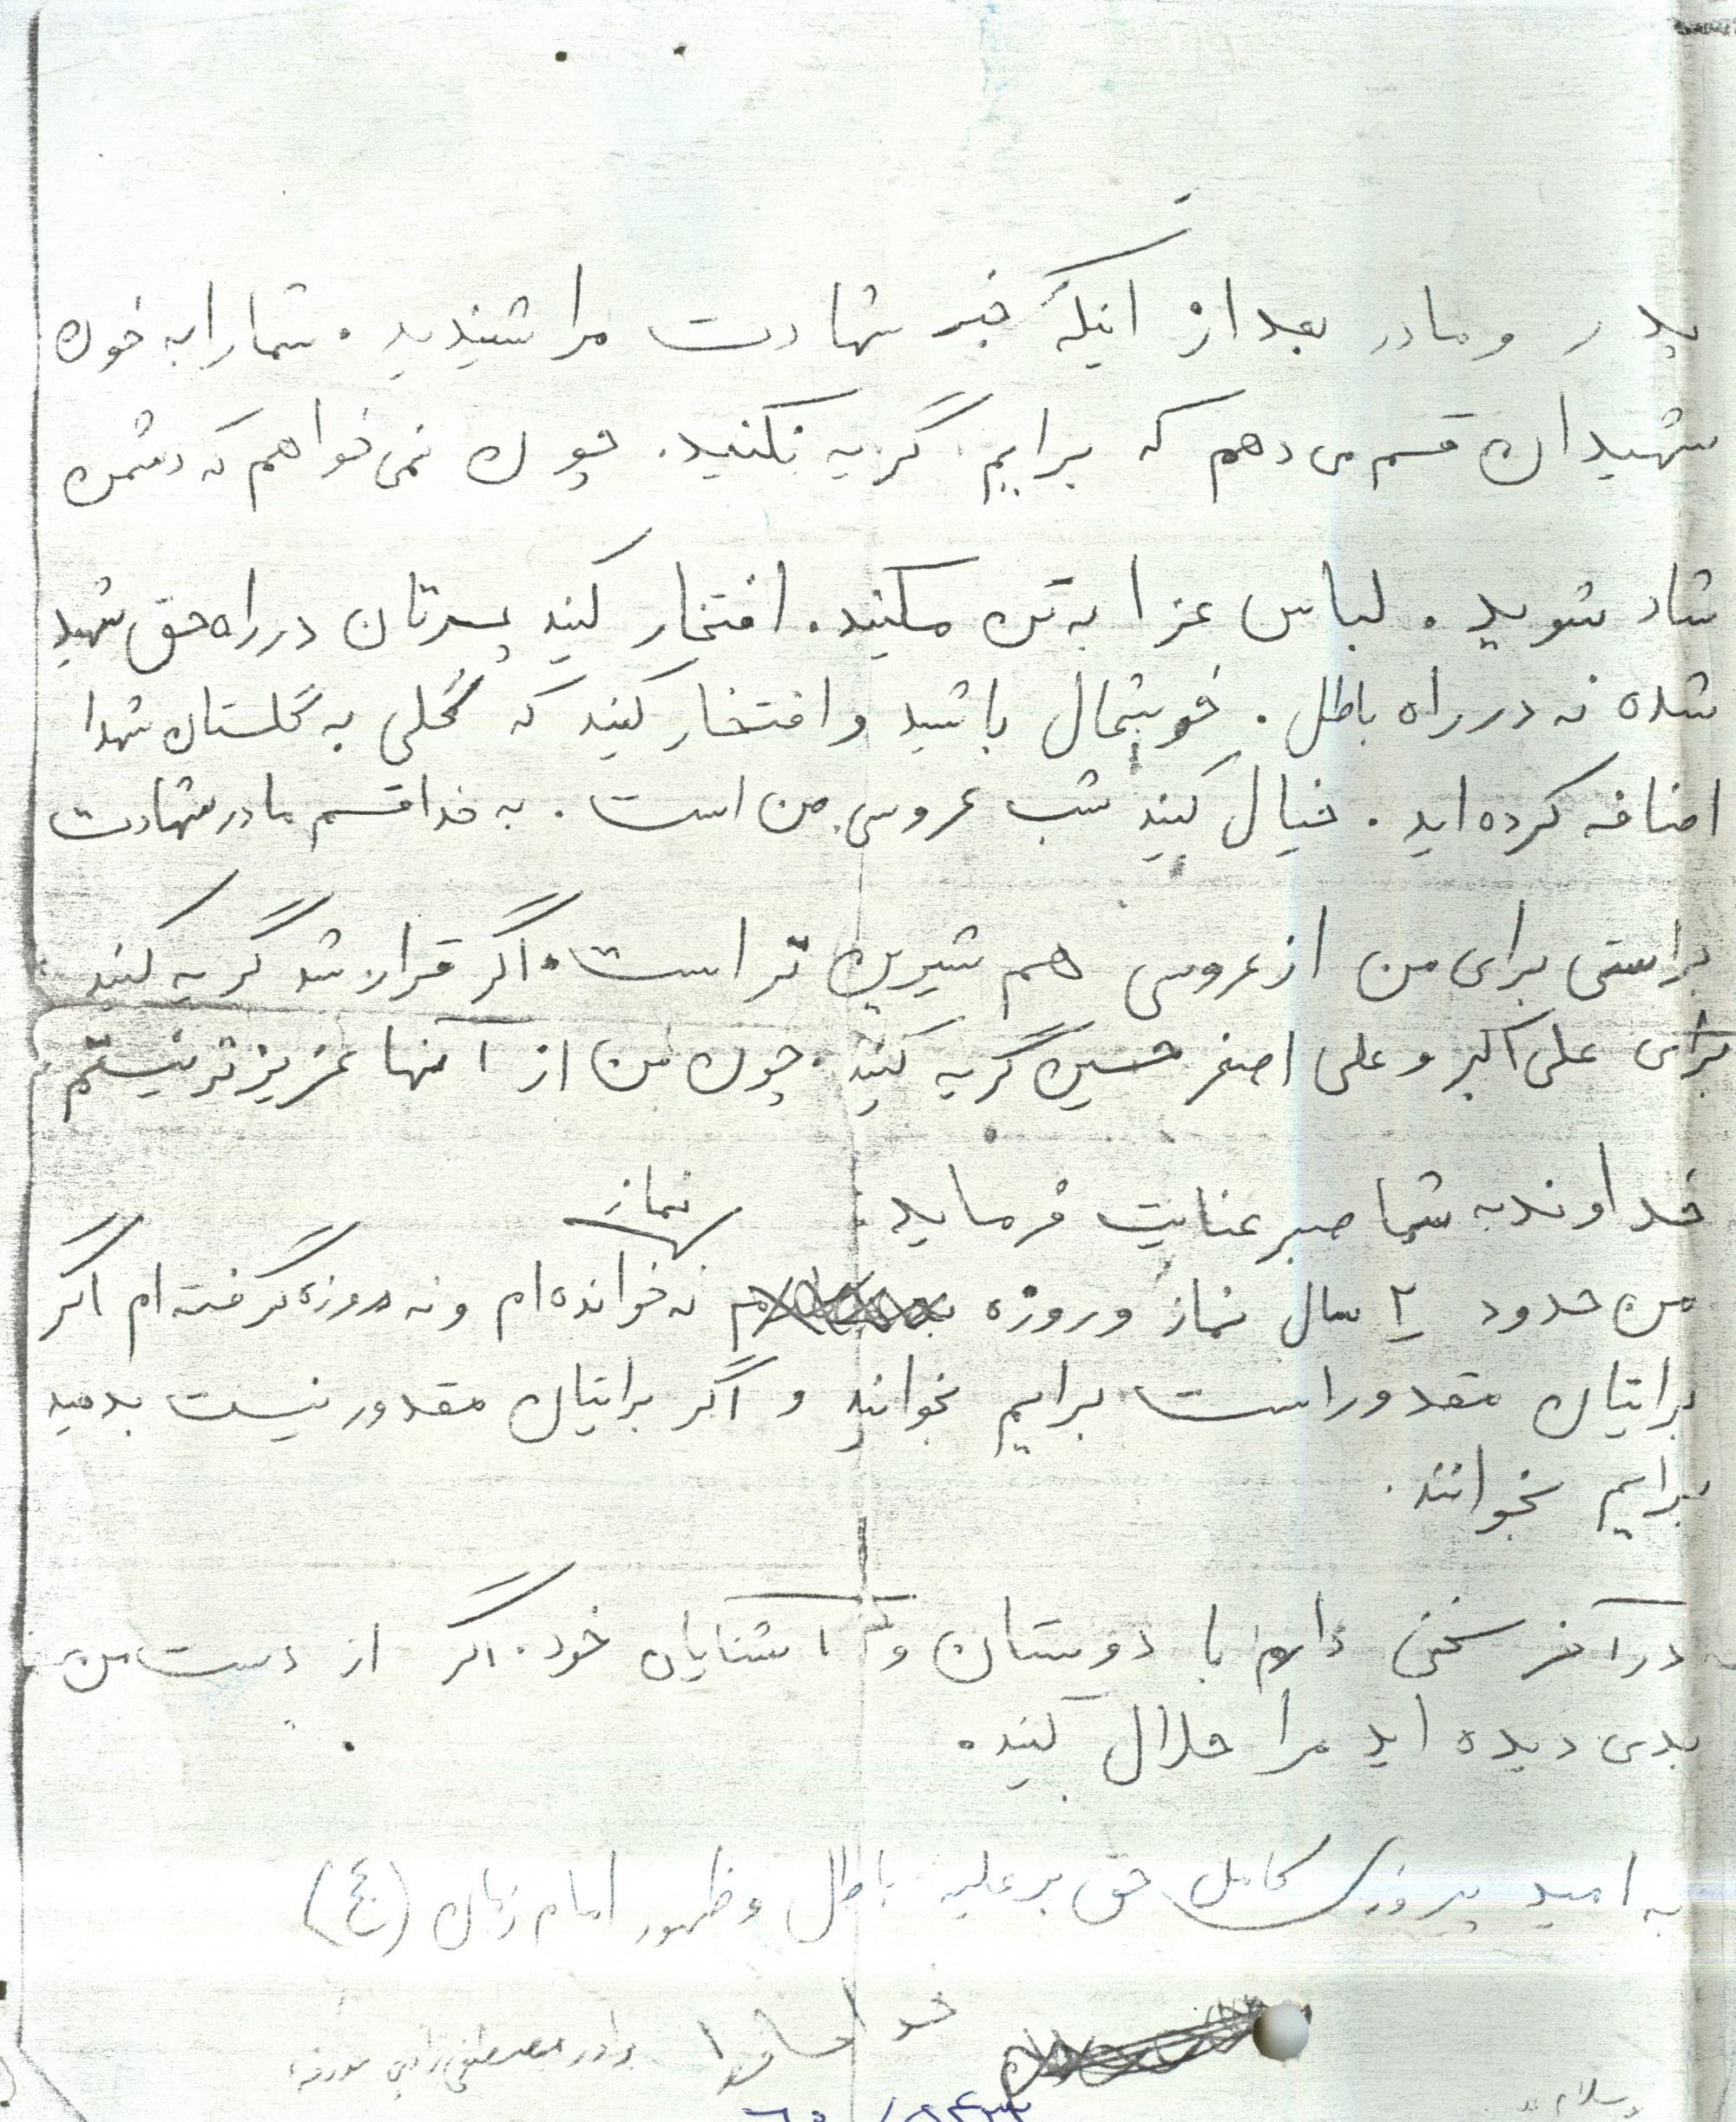 پدر و مادر بعد از اینکه خبر شهادت مرا شنیدید . شما را به خون
شهیدان قسم می دهم که برایم گریه نکنید . چون نمی خواهم که دشمن
شاد شوید . لباس عزا به تن مکنید . افتخار کنید پسرتان در راه حق شهید
شده نه در راه باطل . خوشحال باشید و افتخار کنید که گلی به گلستان شهدا
اضافه کرده اید . خیال کنید شب عروسی من است . به خدا قسم مادر شهادت
براستی برای من از عروسی هم شیرین تر است . اگر قرار شد گریه کنید
برای علی اکبر و علی اصغر حسین گریه کنید . چون من از آنها عزیزتر نیستم .
خداوند به شما صبر عنایت فرماید .
نماز
من حدود ۲ سال نماز و روزه نه خوانده ام و نه روزه گرفته ام اگر
برایتان مقدور است برایم بخوانید و اگر برایتان مقدور نیست بدهید
برایم بخوانند .
در آخر سخنی دارم با دوستان و آشنایان خود . اگر از دست من
بدی دیده اید مرا حلال کنید .
به امید پیروزی کامل حق بر علیه باطل و ظهور امام زمان (عج)
خداحافظ
برادر مصطفی
وسلام